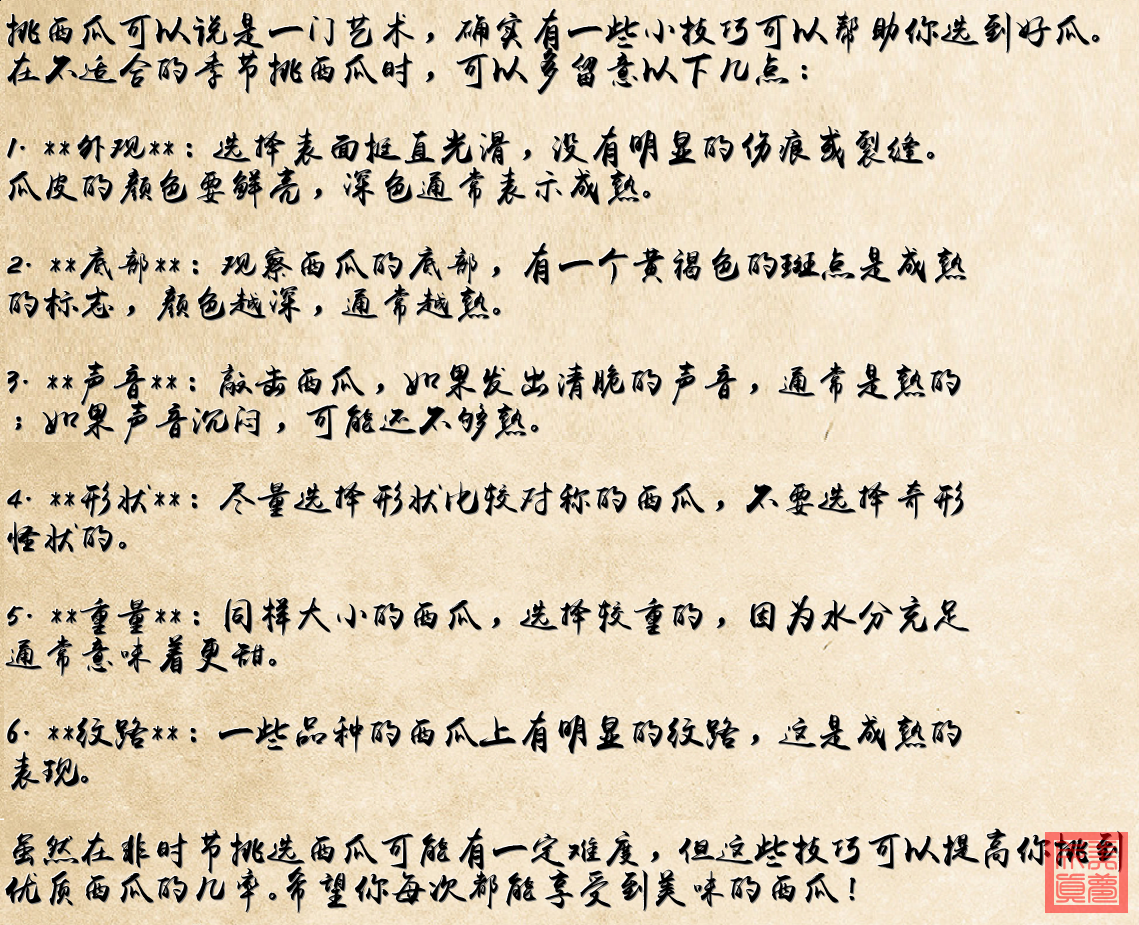 挑西瓜可以说是一门艺术，确实有一些小技巧可以帮助你选到好瓜。
在不适合的季节挑西瓜时，可以多留意以下几点：
1. **外观**：选择表面挺直光滑，没有明显的伤痕或裂缝。
瓜皮的颜色要鲜亮，深色通常表示成熟。
2. **底部**：观察西瓜的底部，有一个黄褐色的斑点是成熟
的标志，颜色越深，通常越熟。
3. **声音**：敲击西瓜，如果发出清脆的声音，通常是熟的
；如果声音沉闷，可能还不够熟。
4. **形状**：尽量选择形状比较对称的西瓜，不要选择奇形
怪状的。
5. **重量**：同样大小的西瓜，选择较重的，因为水分充足
通常意味着更甜。
6. **纹路**：一些品种的西瓜上有明显的纹路，这是成熟的
表现。
虽然在非时节挑选西瓜可能有一定难度，但这些技巧可以提高你挑到
优质西瓜的几率。希望你每次都能享受到美味的西瓜！